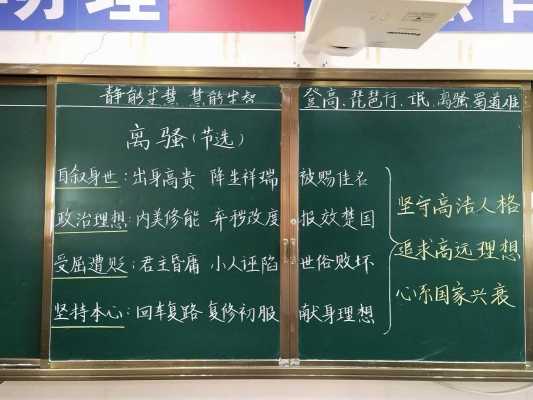 办理
静能生慧 慧能生智
登高、琵琶行、氓、离骚 蜀道难
离骚(节选)
自叙身世:出身高贵 降生祥瑞 被赐佳名
政治理想:内美修能 弃秽改度 报效楚国
受屈遭贬:君主昏庸 小人诬陷 世俗败坏
坚持本心:回车复路 复修初服 献身理想
坚守高洁人格
追求高远理想
心系国家兴衰